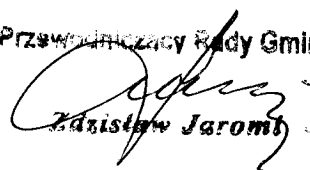 Przewodniczący Rady Gmin
Zdzisław Jaromi